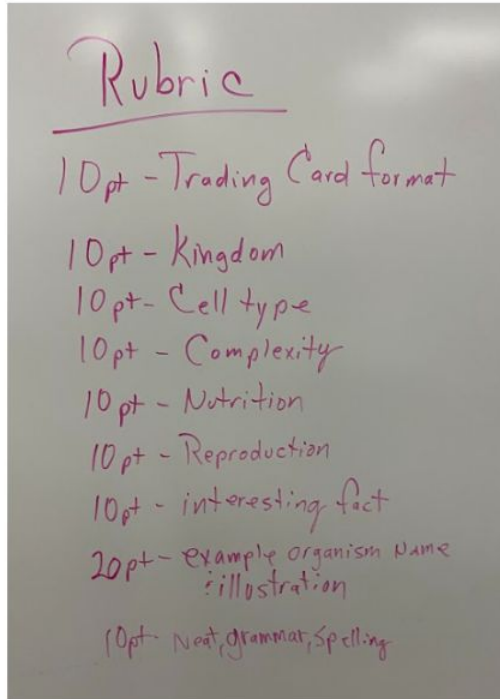 Rubric
10pt - Trading Card format
10pt - Kingdom
10pt - Cell type
10pt - Complexity
10pt - Nutrition
10pt - Reproduction
10pt - interesting fact
20pt - example organism Name
: illustration
10pt - Neat, grammar, spelling